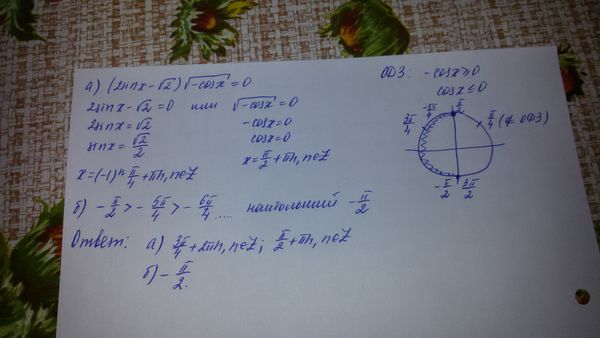 а) (2sinx-√2)√-cosx=0
2sinx-√2=0 или √-cosx=0
2sinx=√2 -cosx=0
sinx=√2/2 cosx=0
x=(-1)ⁿ π/4+πn, n∈Z x=π/2+πn, n∈Z
ОДЗ: -cosx≥0
cosx≤0
-5π/4 π/2
3π/4 π/4 (∉ ОДЗ)
-π/2 3π/2
б) -π/2 > -5π/4 > -6π/4 .... наибольший -π/2
Ответ: а) 3π/4+2πn, n∈Z; π/2+πn, n∈Z
б) -π/2.